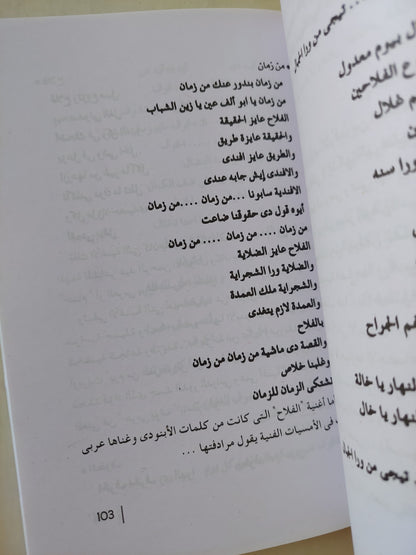 من زمان
من زمان بندور عنك من زمان
من زمان يا ابو ألف عين يا زين الشباب
الفلاح عايز الحقيقة
والحقيقة عايزة طريق
والطريق عايز افندى
والافندى إيش جابه عندى
الافندية سابونا ... من زمان ....من زمان
أيوه قول دى حقوقنا ضاعت
من زمان .... من زمان .... من زمان
الفلاح عايز الضلاية
والضلاية ورا الشجراية
والشجراية ملك العمدة
والعمدة لازم يتغدى
بالفلاح
والقصة دى ماشية من زمان من زمان
وغلبنا خلاص
نشتكى الزمان للزمان
أغنية "الفلاح" التى كانت من كلمات الأبنودى وغناها عربى
فى الأمسيات الفنية يقول مرادفتها ...
103
... تيجى من ورا
بيوم معدول
ع الفلاحين
هلال
ورا سنه
الجراح
النهار يا خالة
النهار يا خال
تيجى من ورا